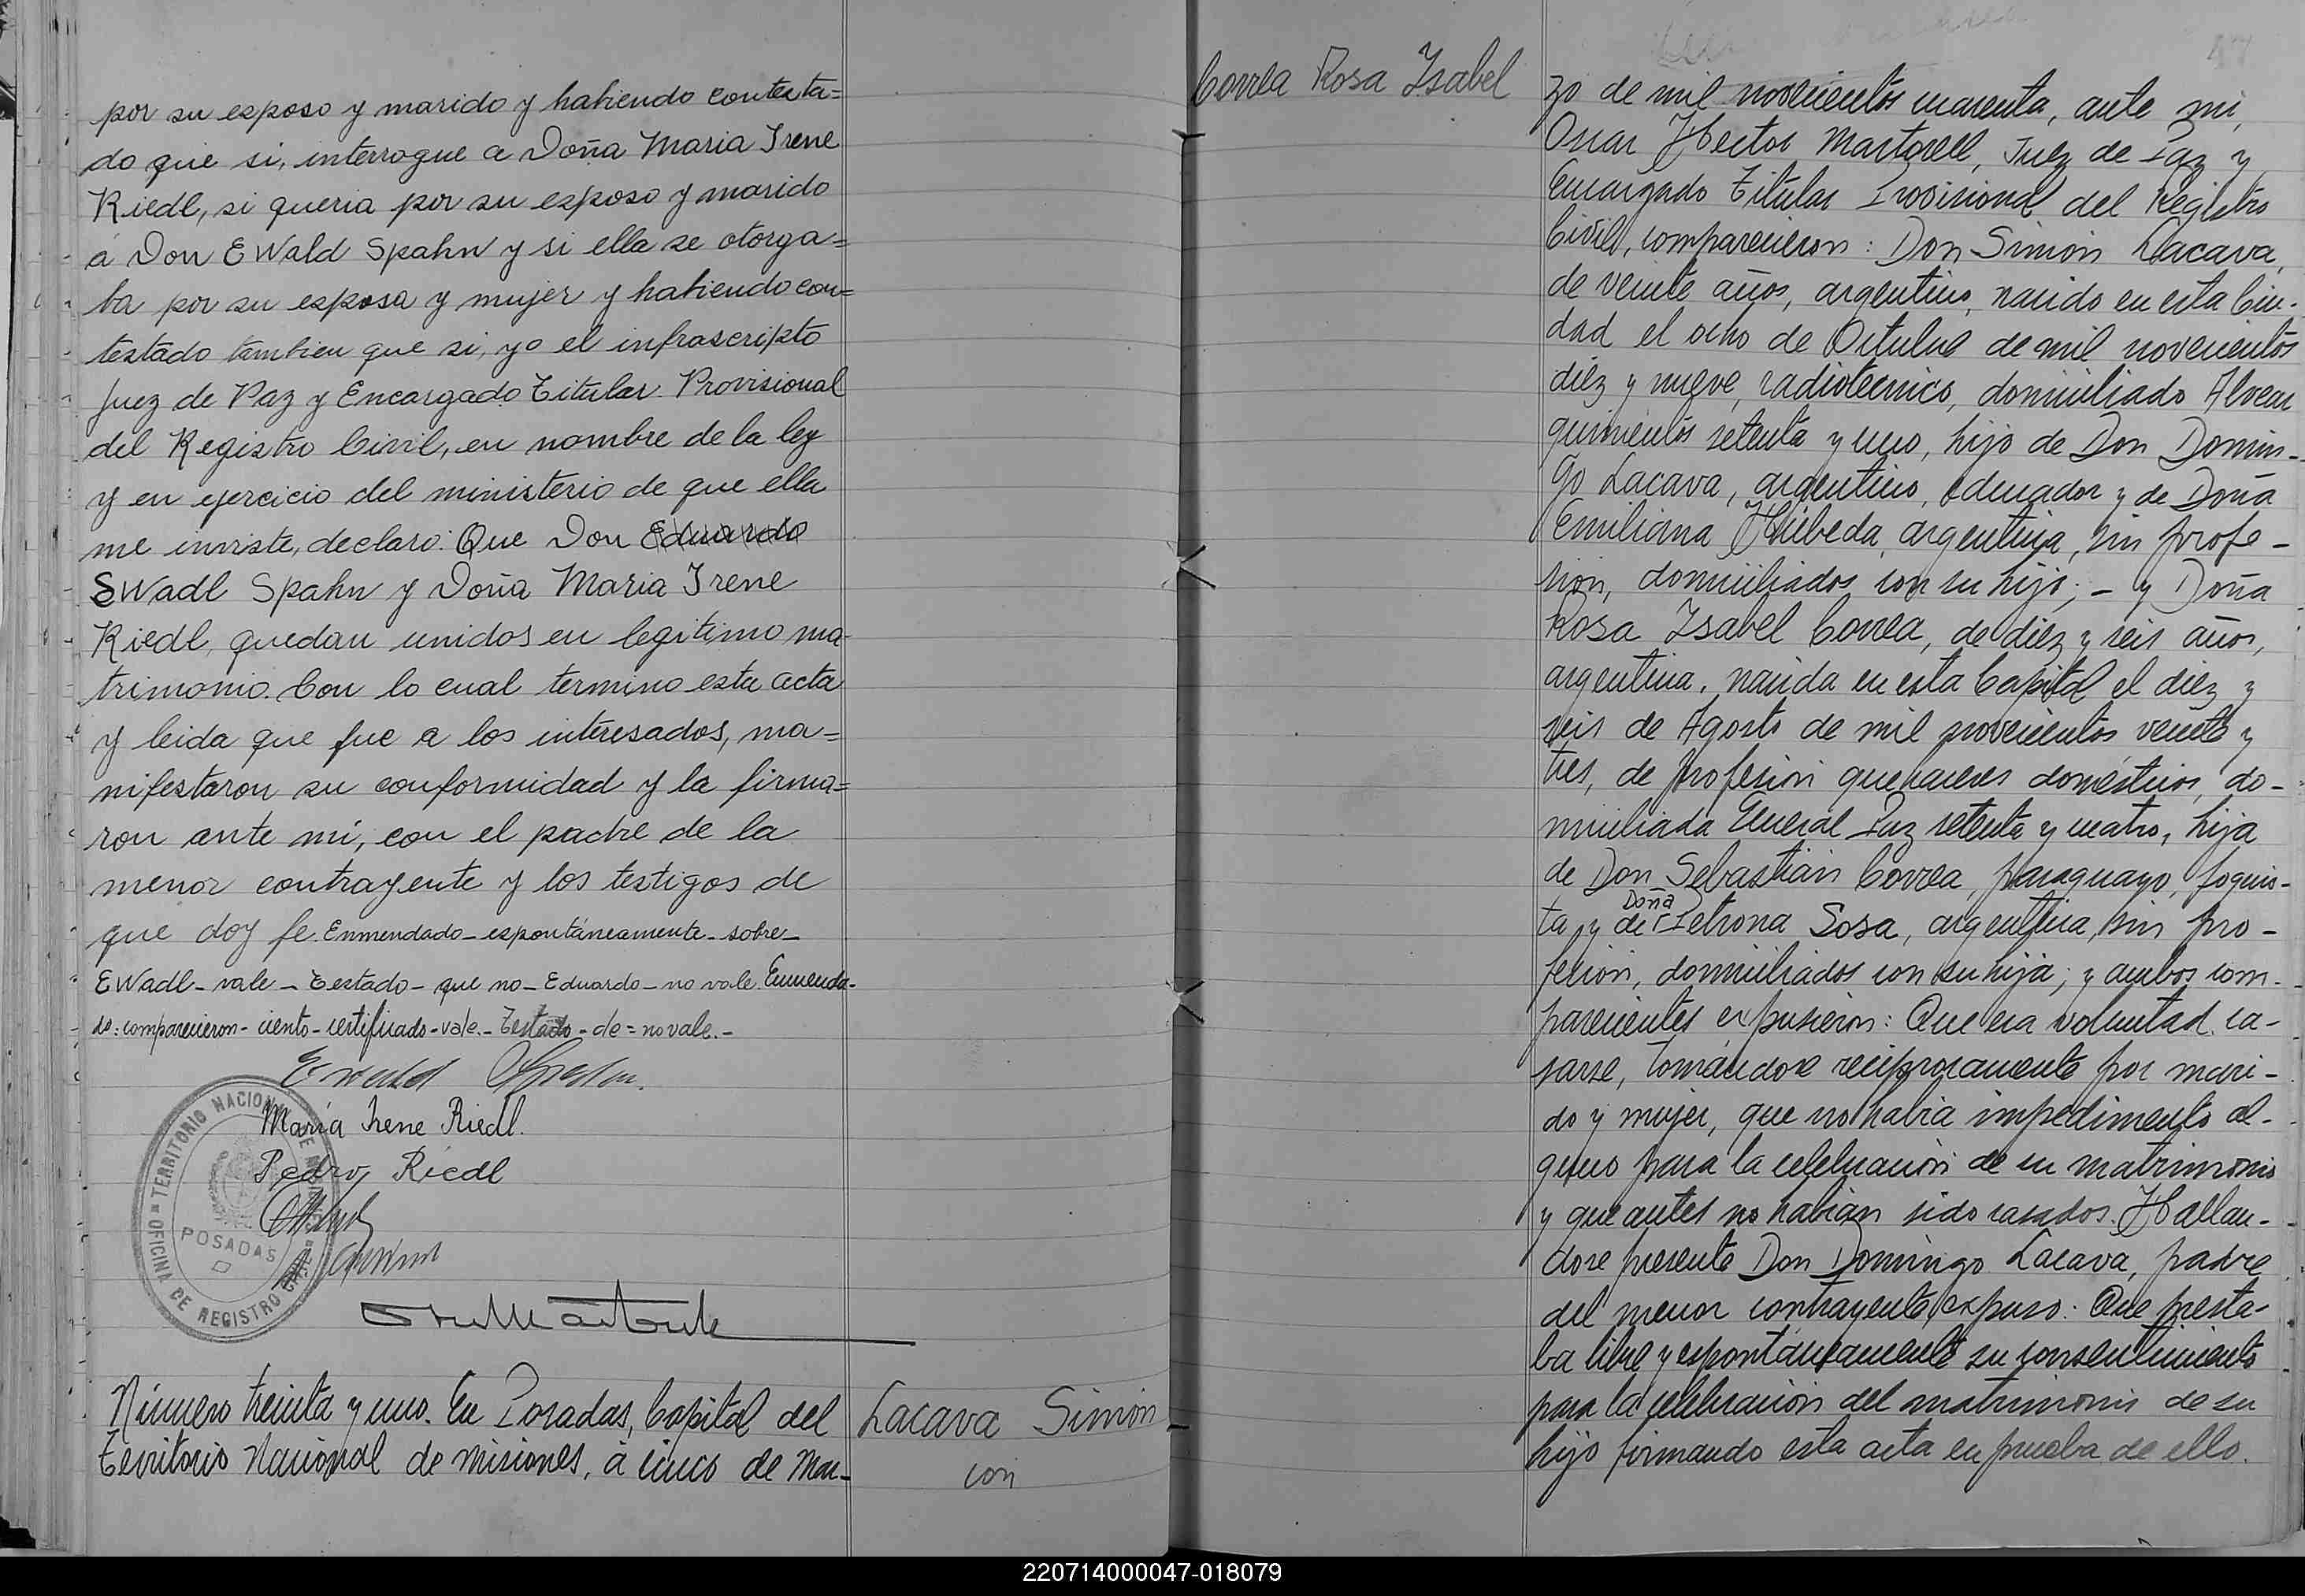 por su esposo y marido y habiendo contesta=
do que si, interrogue a Doña Maria Irene
Riedl, si queria por su esposo y marido
á Don EWald Spahn y si ella se otorga=
ba por su esposa y mujer y habiendo con=
testado tambien que si, yo el infrascripto
Juez de Paz y Encargado Titular Provisional
del Registro Civil, en nombre de la ley
y en ejercicio del ministerio de que ella
me inviste, declaro: Que Don Eduardo
EWadl Spahn y Doña Maria Irene
Riedl, quedan unidos en legitimo ma-
trimonio. Con lo cual termino esta acta
y leida que fue a los interesados, ma=
nifestaron su conformidad y la firma=
ron ante mi, con el padre de la
menor contrayente y los testigos de
que doy fe. Enmendado_espontáneamente_sobre_
EWadl_vale_Testado_que no_Eduardo_no vale. Enmenda-
do: comparecieron-ciento-certificado-vale.-Testado-de=no vale.-
Ewald Spahn.
María Irene Riedl.
Pedro Riedl
OFICINA DE REGISTRO CIVIL = TERRITORIO NACIONAL DE MISIONES
POSADAS
Número treinta y uno. En Posadas, Capital del
Territorio Nacional de Misiones, á cinco de Mar-
Lacava Simón
con
Correa Rosa Isabel
47
zo de mil novecientos cuarenta, ante mi,
Oscar Hector Martorell, Juez de Paz y
Encargado Titular Provisional del Registro
Civil, comparecieron: Don Simón Lacava,
de veinte años, argentino, nacido en esta Ciu-
dad el ocho de Octubre de mil novecientos
diez y nueve, radiotecnico, domiciliado Alvear
quinientos setenta y uno, hijo de Don Domin-
go Lacava, argentino, educador y de Doña
Emiliana argentina, sin profe-
sion, domiciliados con su hijo; - y Doña
Rosa Isabel Correa, de diez y seis años,
argentina, nacida en esta Capital el diez y
seis de Agosto de mil novecientos veinte y
tres, de profesión quehaceres domésticos, do-
miciliada General Paz setenta y cuatro, hija
de Don Sebastián Correa, paraguayo, foguis-
ta, y de Doña Petrona Sosa, argentina, sin pro-
fesion, domiciliados con su hija; y ambos com-
parecientes expusieron: Que era voluntad ca-
sarse, tomándose reciprocamente por mari-
do y mujer, que no habia impedimento al-
guno para la celebración de su matrimonio
y que antes no habian sido casados. Hallan-
dose presente Don Domingo Lacava, padre
del menor contrayente, expuso: Que presta-
ba libre y espontáneamente su consentimiento
para la celebración del matrimonio de su
hijo firmando esta acta en prueba de ello.
220714000047-018079